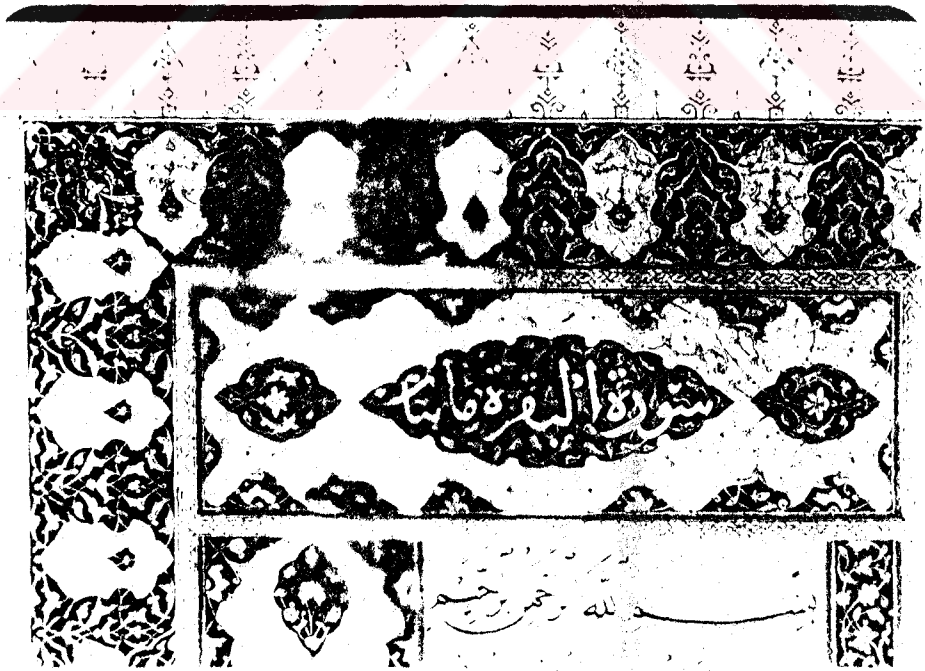 سورة البقرة مائتا
بسم الله الرحمن الرحيم